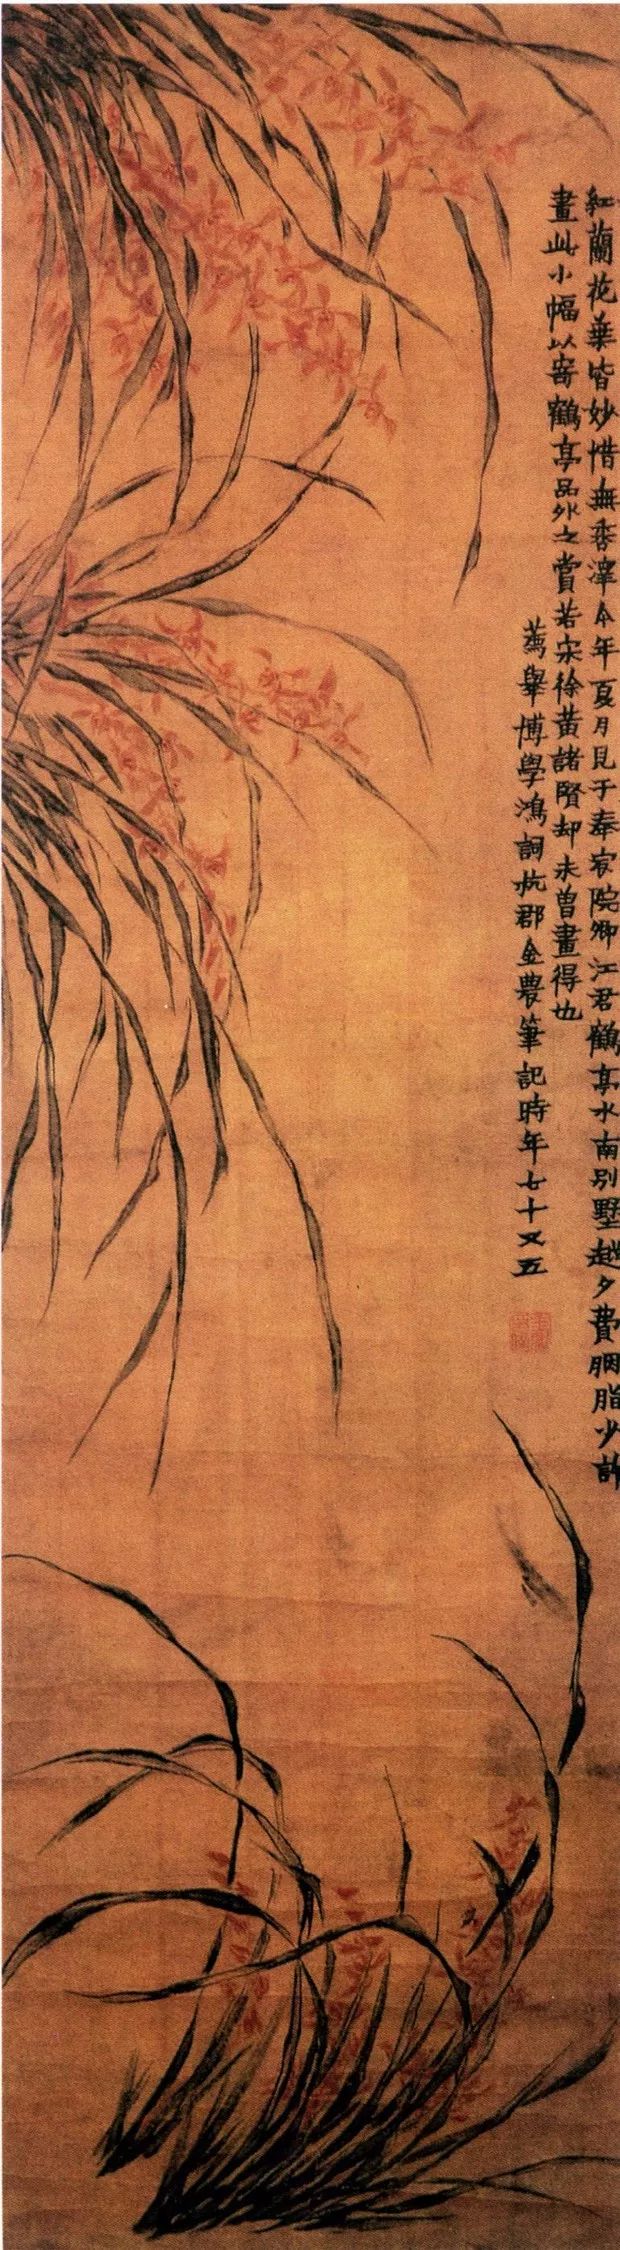 紅蘭花葉皆妙惜無香澤今年夏月見于奉宸院卿江君鶴亭水南別墅越夕費胭脂少許
畫此小幅以寄鶴亭品外之賞若宋徐黃諸賢卻未曾畫得也
薦舉博學鴻詞杭郡金農筆記時年七十又五